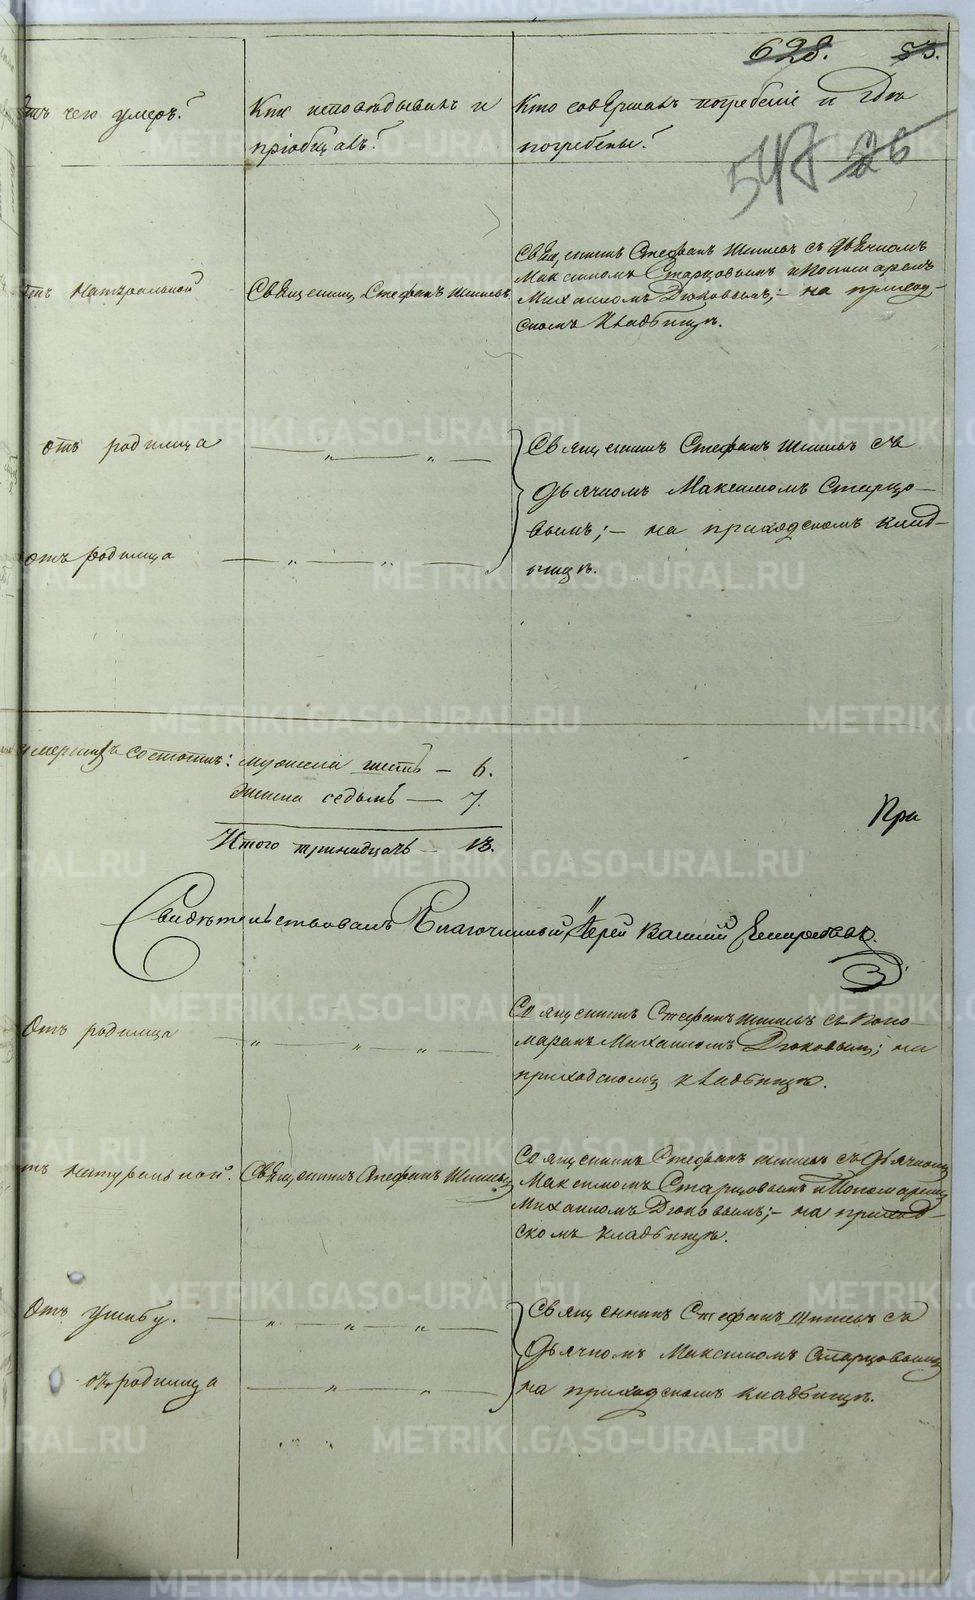 628. 53.
547 26
Отъ чего умеръ?
Кто исповѣдывалъ и
пріобщалъ?
Кто совершалъ погребеніе и гдѣ
погребены?
Отъ натуральной
Священникъ Стефанъ
Священникъ Стефанъ съ дьячкомъ
Максимомъ Старцовымъ и Пономаремъ
Михаиломъ Дюковымъ; – на приход-
скомъ кладбищѣ.
отъ родимца
Священникъ Стефанъ съ
дьячкомъ Максимомъ Старцо-
вымъ; – на приходскомъ клад-
бищѣ.
отъ родимца
умершихъ состоитъ: мужеска шесть – 6.
женска седьмь – 7.
Итого тринадцать – 13.
При
Свидѣтельствовалъ Благочинный Іерей Василій
Отъ родимца
Священникъ Стефанъ съ Поно-
маремъ Михаиломъ Дюковымъ; на
приходскомъ кладбищѣ.
отъ натуральной.
Священникъ Стефанъ
Священникъ Стефанъ съ дьячкомъ
Максимомъ Старцовымъ и Пономаремъ
Михаиломъ Дюковымъ; – на приход-
скомъ кладбищѣ.
Отъ ушибу.
Священникъ Стефанъ съ
дьячкомъ Максимомъ Старцовымъ
на приходскомъ кладбищѣ.
отъ родимца
METRIKI.GASO-URAL.RU